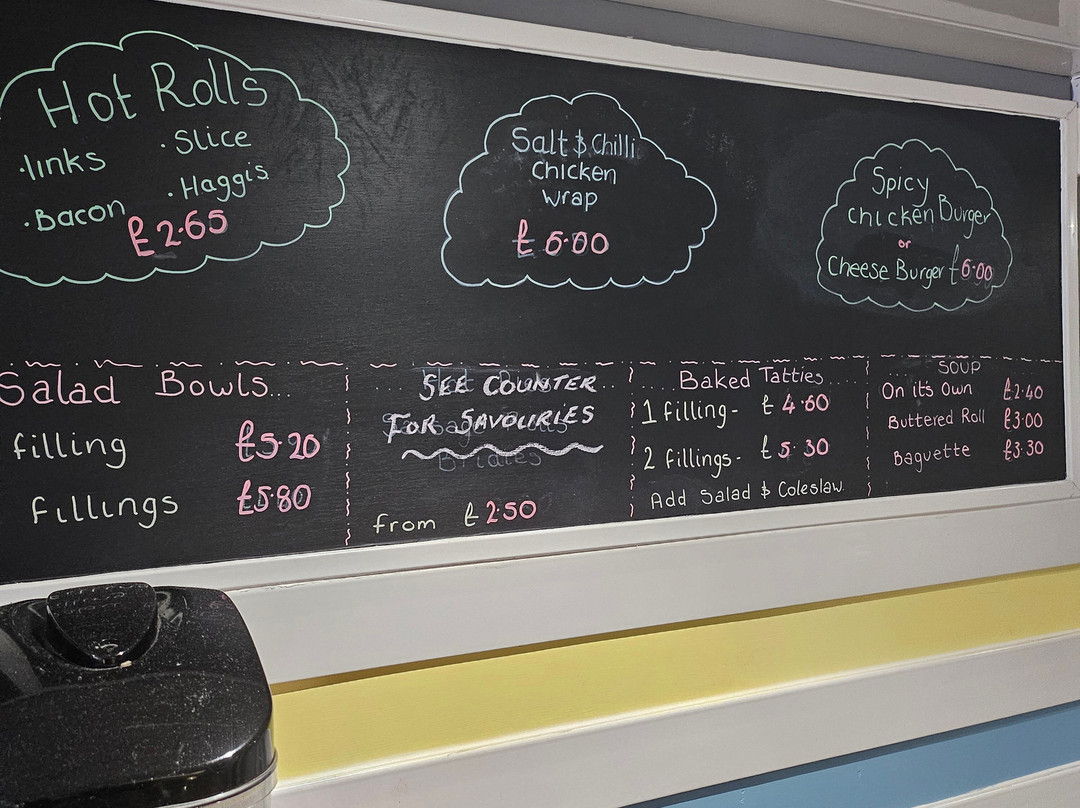 Hot Rolls
· links · Slice
· Bacon · Haggis
£2·65
Salt & Chilli
Chicken
Wrap
£6·00
Spicy
Chicken Burger
or
Cheese Burger £6·00
Salad Bowls...
filling £5·20
fillings £5·80
SEE COUNTER
FOR SAVOURIES
Bridies
from £2·50
Baked Tatties
1 filling - £4·60
2 fillings - £5·30
Add Salad & Coleslaw
SOUP
On it's Own £2·40
Buttered Roll £3·00
Baguette £3·30